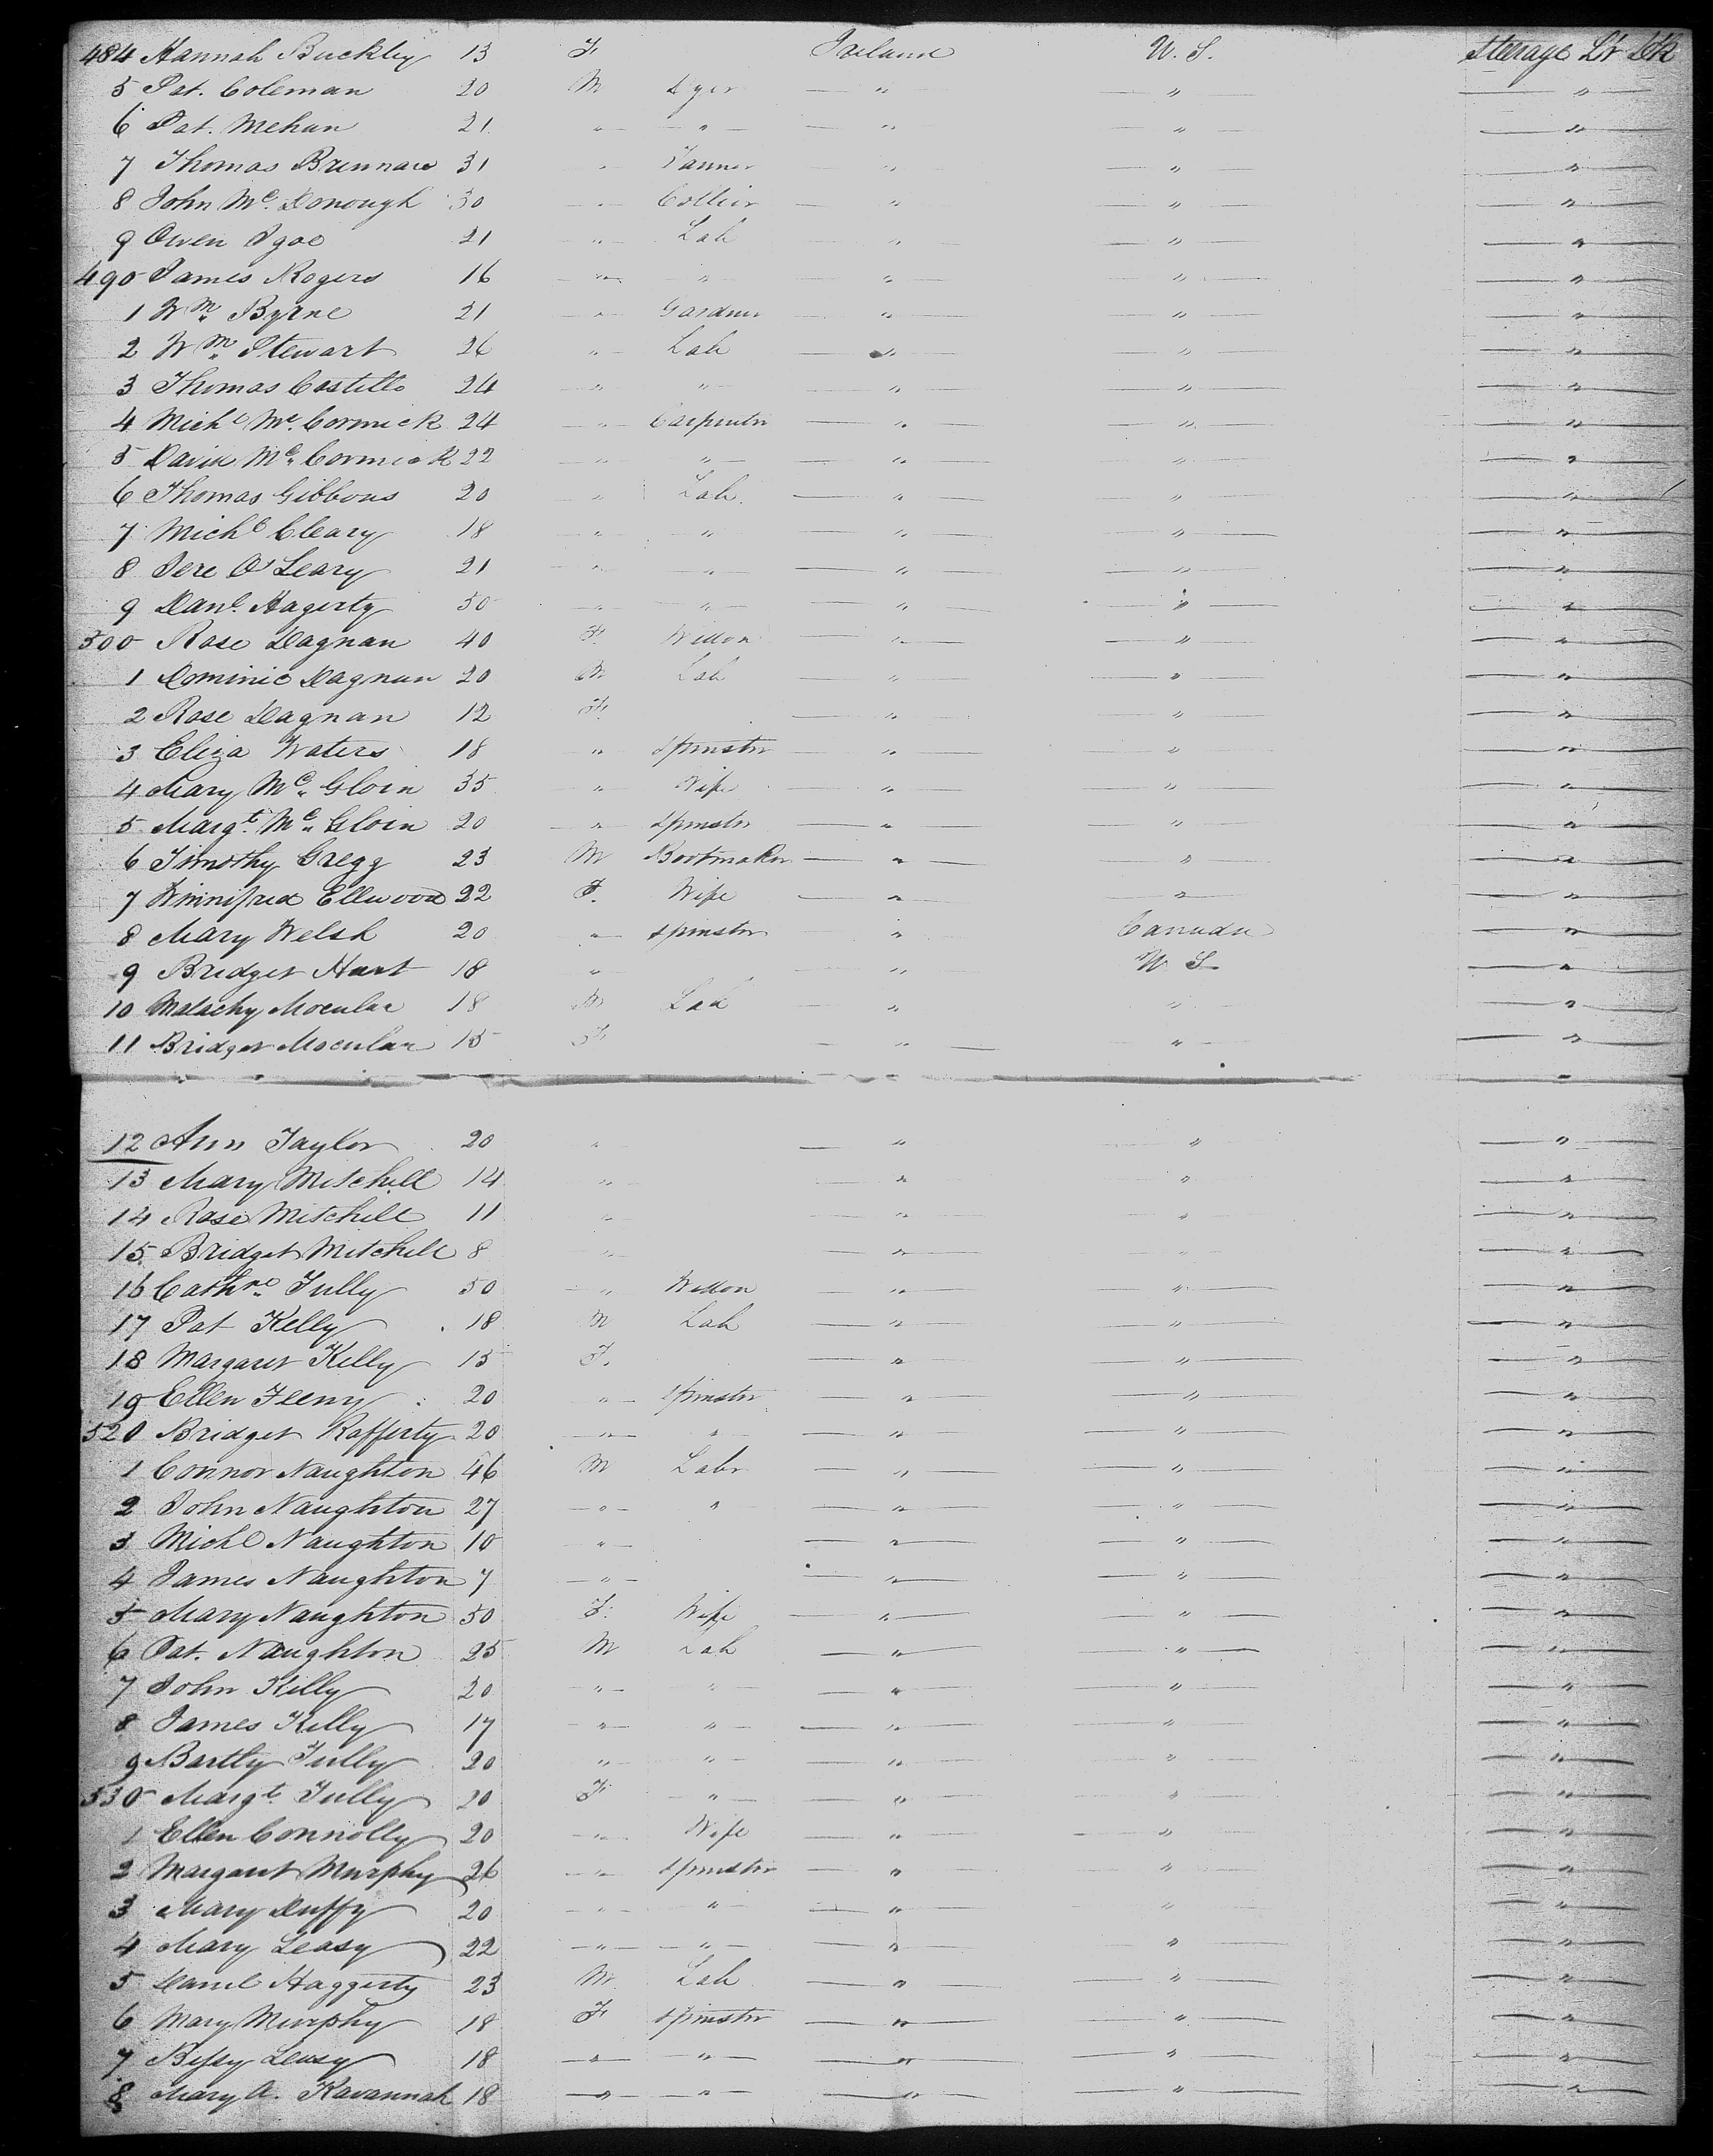 484 Hannah Buckley 13 F Ireland U. S. Steerage Lr Dk
5 Pat. Coleman 20 M Dyer " " "
6 Pat. Mehan 21 " " " " "
7 Thomas Brennan 31 " Tanner " " "
8 John Mc. Donough 30 " Collier " " "
9 Owen Igoe 21 " Lab " " "
490 James Rogers 16 " " " " "
1 Wm. Byrne 21 " Gardner " " "
2 Wm. Stewart 26 " Lab " " "
3 Thomas Costello 24 " " " " "
4 Michl Mc. Cormick 24 " Carpenter " " "
5 David Mc. Cormick 22 " " " " "
6 Thomas Gibbons 20 " Lab. " " "
7 Michl Cleary 18 " " " " "
8 Jere O'Leary 21 " " " " "
9 Danl. Hagerty 50 " " " " "
500 Rose Dagnan 40 F. Widdow " " "
1 Dominic Dagnan 20 M Lab " " "
2 Rose Dagnan 12 F. " " "
3 Eliza Waters 18 " Spinster " " "
4 Mary Mc. Gloin 35 " Wife " " "
5 Margt. Mc. Gloin 20 " Spinster " " "
6 Timothy Gregg 23 M Bootmaker " " "
7 Winnifred Ellwood 22 F. Wife " " "
8 Mary Welsh 20 " Spinster " Canada "
9 Bridget Hart 18 " " U S "
10 Malachy Mocular 18 M Lab " " "
11 Bridget Mocular 15 F " " "
"
12 Ann Taylor 20 " " " "
13 Mary Mitchell 14 " " " "
14 Rose Mitchell 11 " " " "
15 Bridget Mitchell 8 " " " "
16 Cathne. Tully 50 " Widdow " " "
17 Pat Kelly 18 M Lab " " "
18 Margaret Kelly 15 F. " " "
19 Ellen Feeny 20 " Spinster " " "
520 Bridget Rafferty 20 " " " " "
1 Connor Naughton 46 M Labr " " "
2 John Naughton 27 " " " " "
3 Michl Naughton 10 " " " "
4 James Naughton 7 " " " "
5 Mary Naughton 50 F. Wife " " "
6 Pat. Naughton 25 M Lab " " "
7 John Kelly 20 " " " " "
8 James Kelly 17 " " " " "
9 Bartly Tully 20 " " " " "
530 Margt. Tully 20 F " " " "
1 Ellen Connolly 20 " Wife " " "
2 Margaret Murphy 26 " Spinster " " "
3 Mary Duffy 20 " " " " "
4 Mary Leasy 22 " " " " "
5 Daniel Haggerty 23 M Lab " " "
6 Mary Murphy 18 F Spinster " " "
7 Bessy Leasy 18 " " " " "
8 Mary A. Kavannah 18 " " " " "